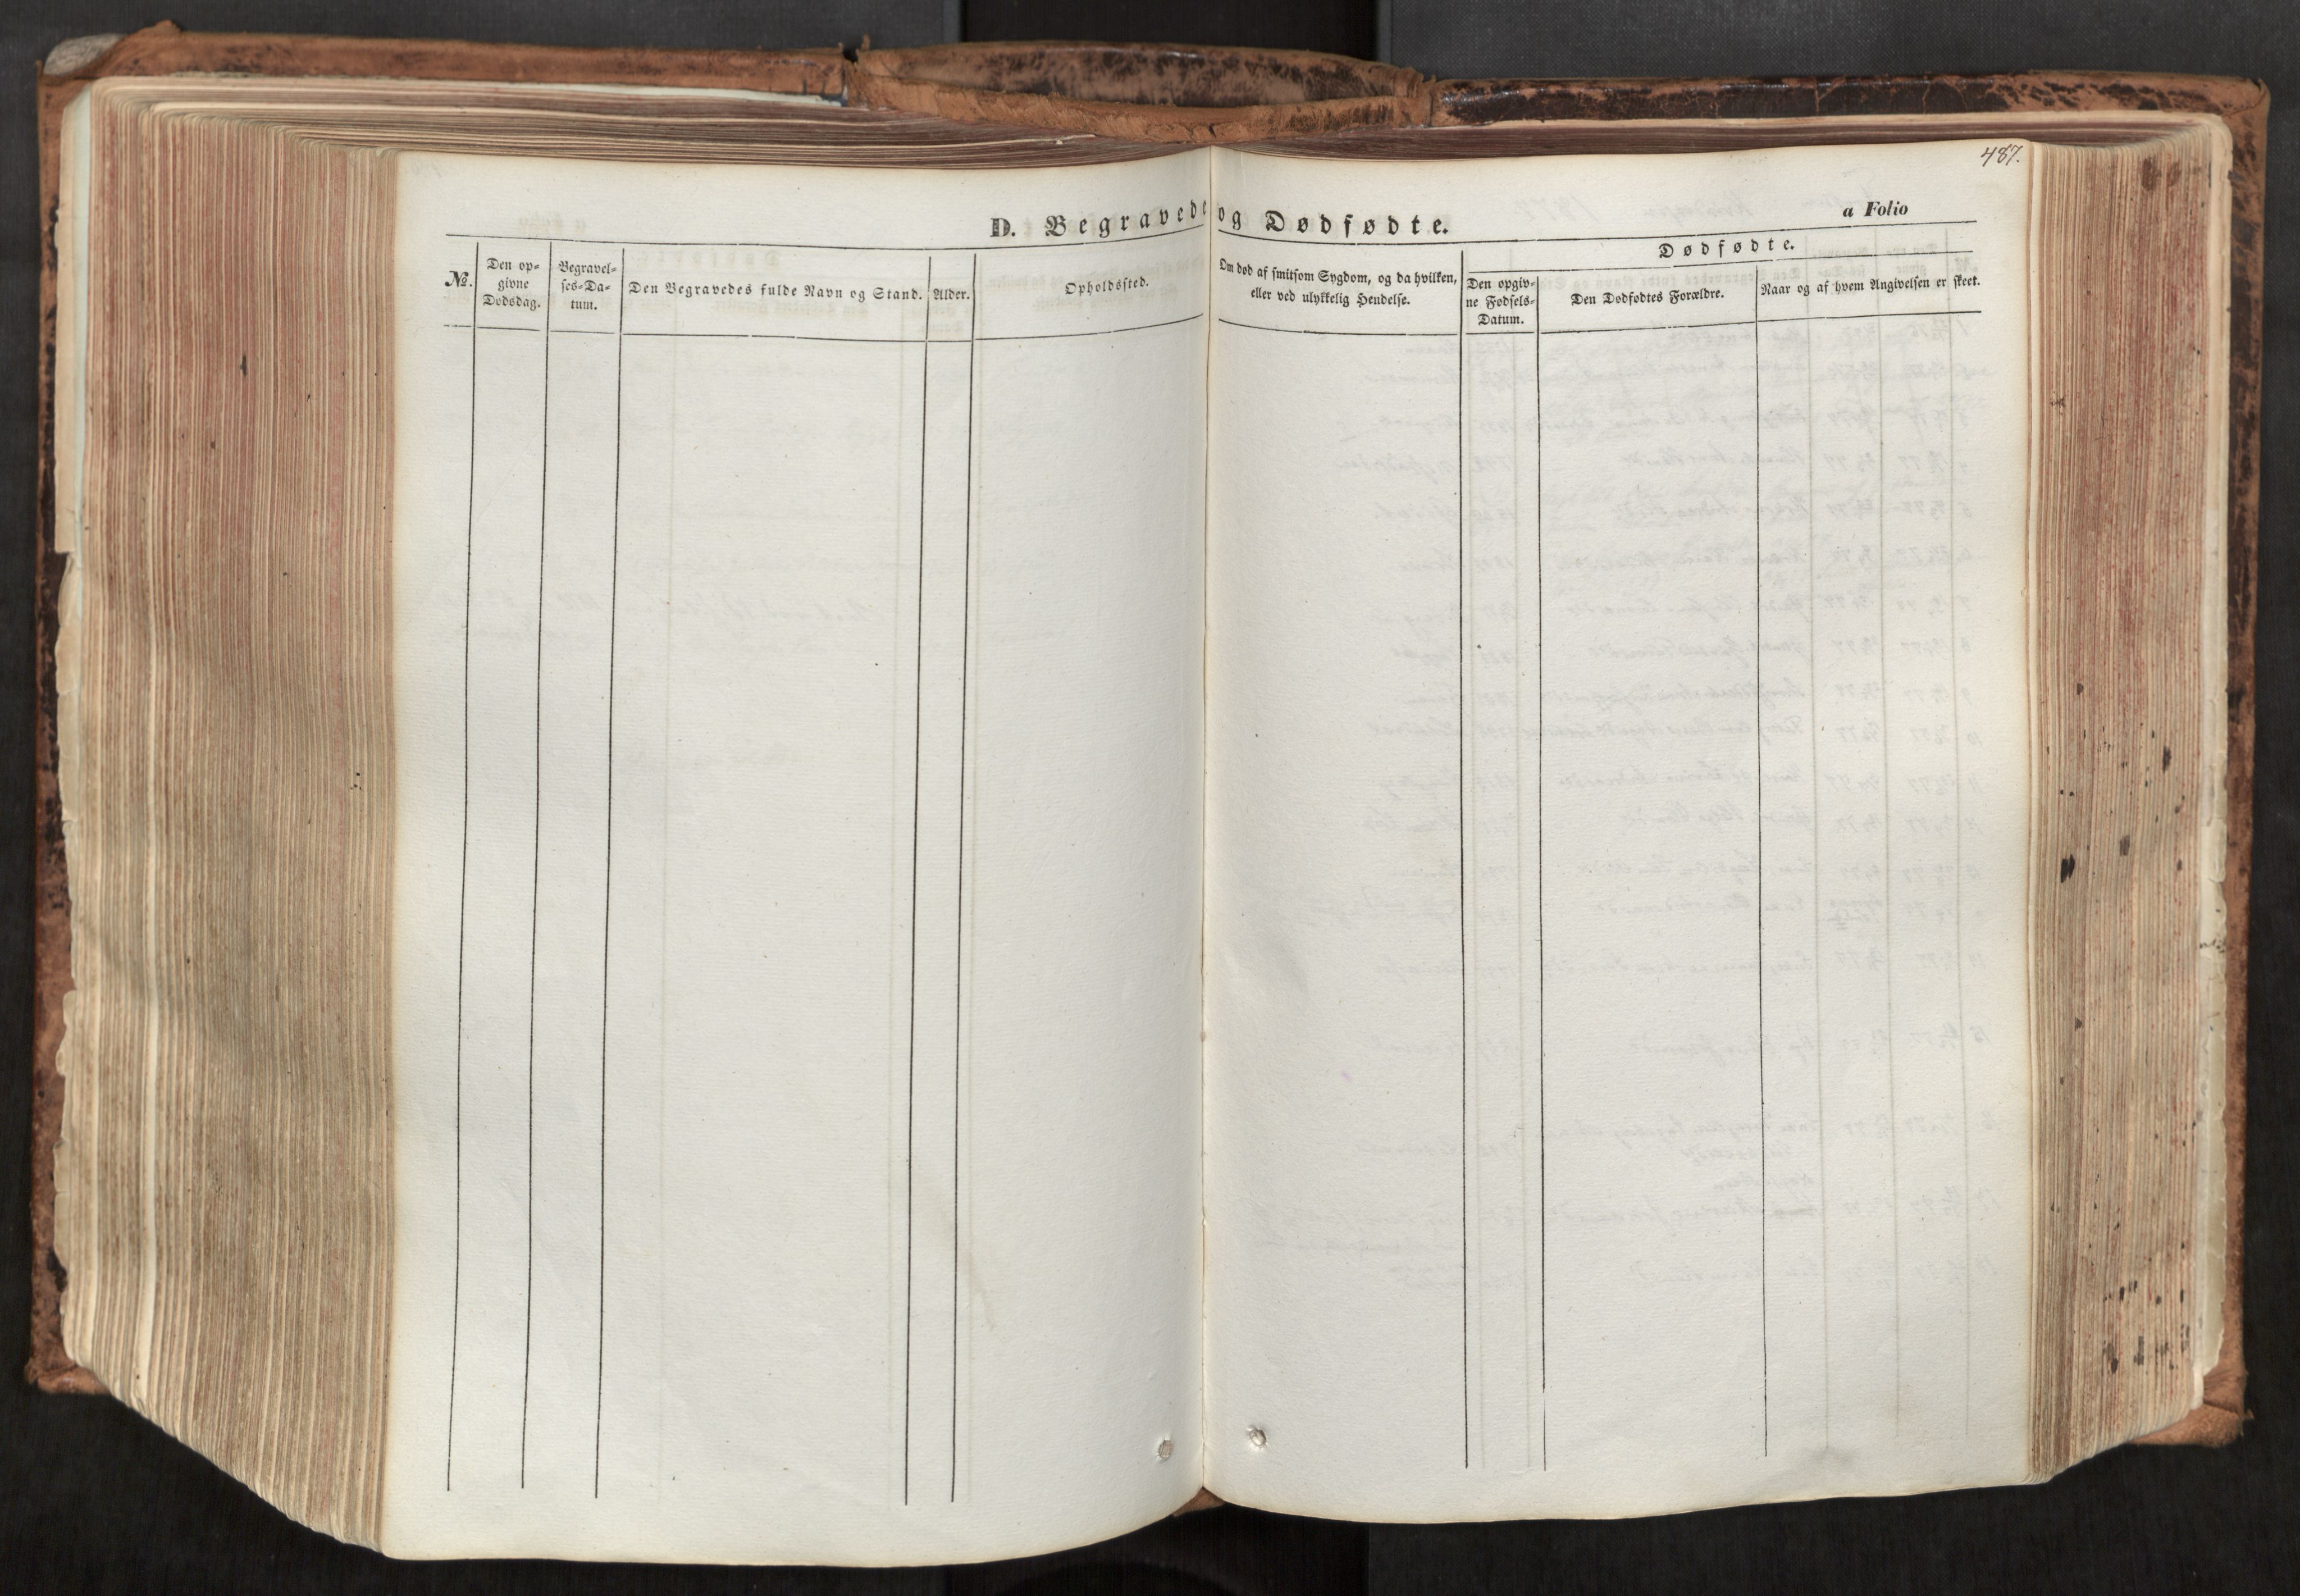 487.
D. Begravede og Dødfødte.
a Folio
No.
Den op-
givne
Dødsdag.
Begravel-
ses-Da-
tum.
Den Begravedes fulde Navn og Stand.
Alder.
Opholdssted.
Om død af smitsom Sygdom, og da hvilken,
eller ved ulykkelig Hendelse.
Dødfødte.
Den opgiv-
ne Fødsels-
Datum.
Den Dødfødtes Forældre.
Naar og af hvem Angivelsen er skeet.